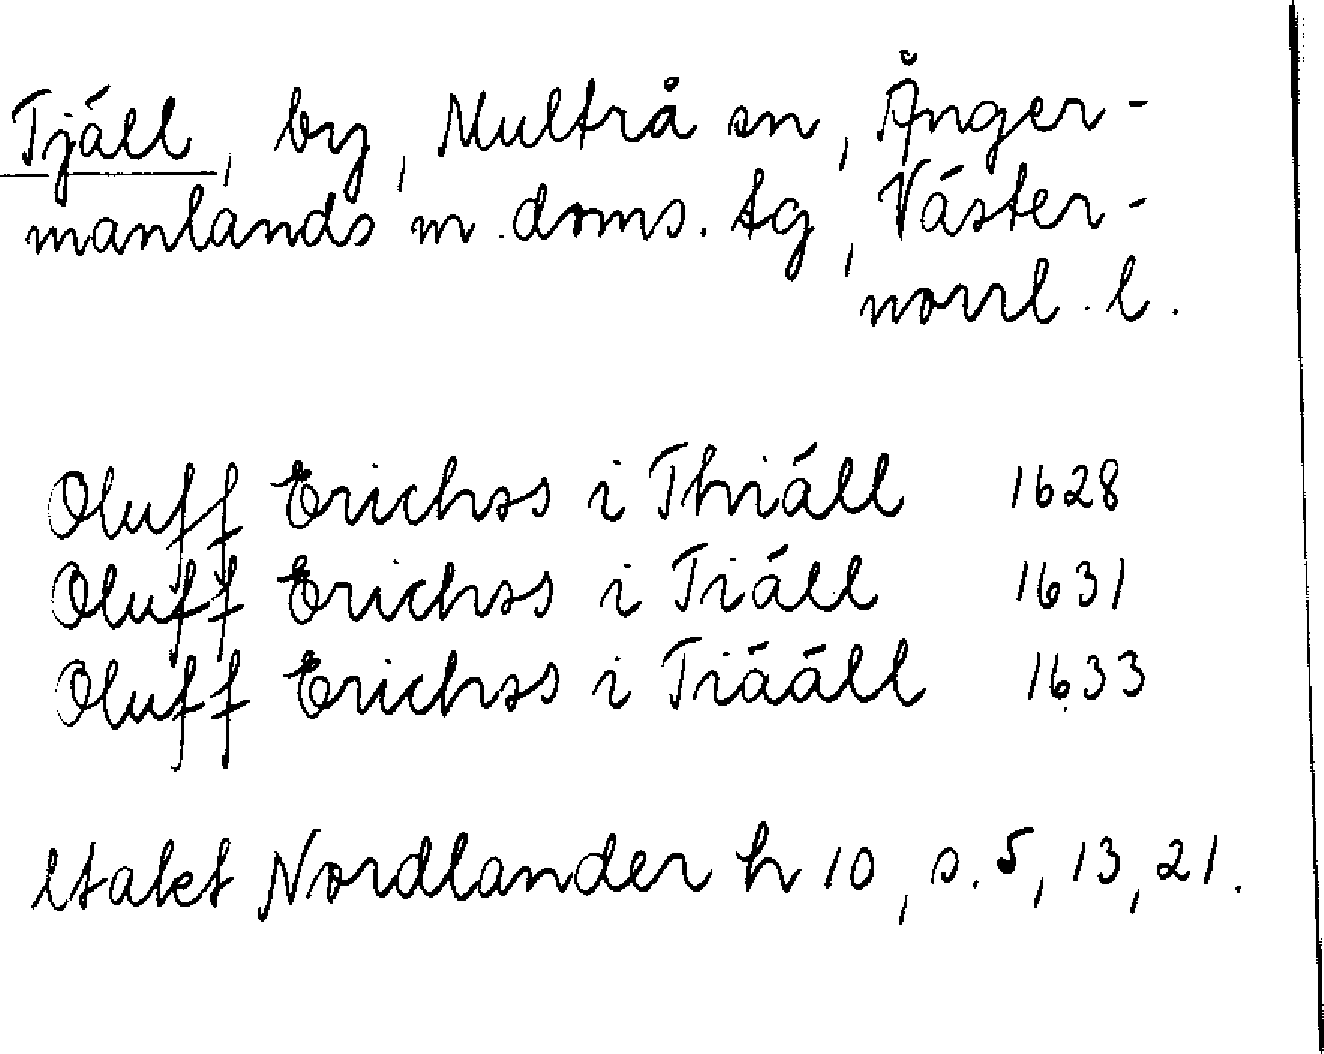 Tjäll, by, Multrå sn, Ånger-
manlands m. doms. tg, Väster-
norrl. l.
Oluff Erichss i Thiäll 1628
Oluff Erichss i Tiäll 1631
Oluff Erichss i Tiääll 1633
Utakt Nordlander h 10, s. 5, 13, 21.